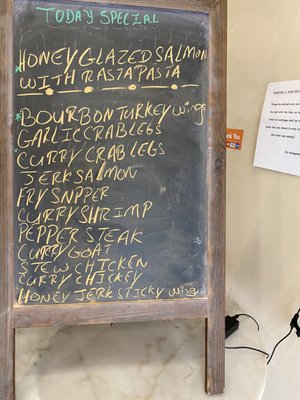 TODAY SPECIAL
*HONEY GLAZED SALMON
WITH RASTA PASTA
*BOURBON TURKEY wings
GARLIC CRAB LEGS
CURRY CRAB LEGS
JERK SALMON
FRY SNPPER
CURRY SHRIMP
PEPPER STEAK
CURRY GOAT
STEW CHICKEN
CURRY CHICKEY
HONEY JERK STICKY wings